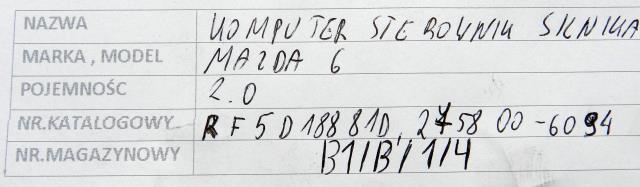 NAZWA KOMPUTER STEROWNIK SILNIKA
MARKA , MODEL MAZDA 6
POJEMNOŚC 2.0
NR.KATALOGOWY RF5D18881D, 275800-6094
NR.MAGAZYNOWY B1/B/1/4